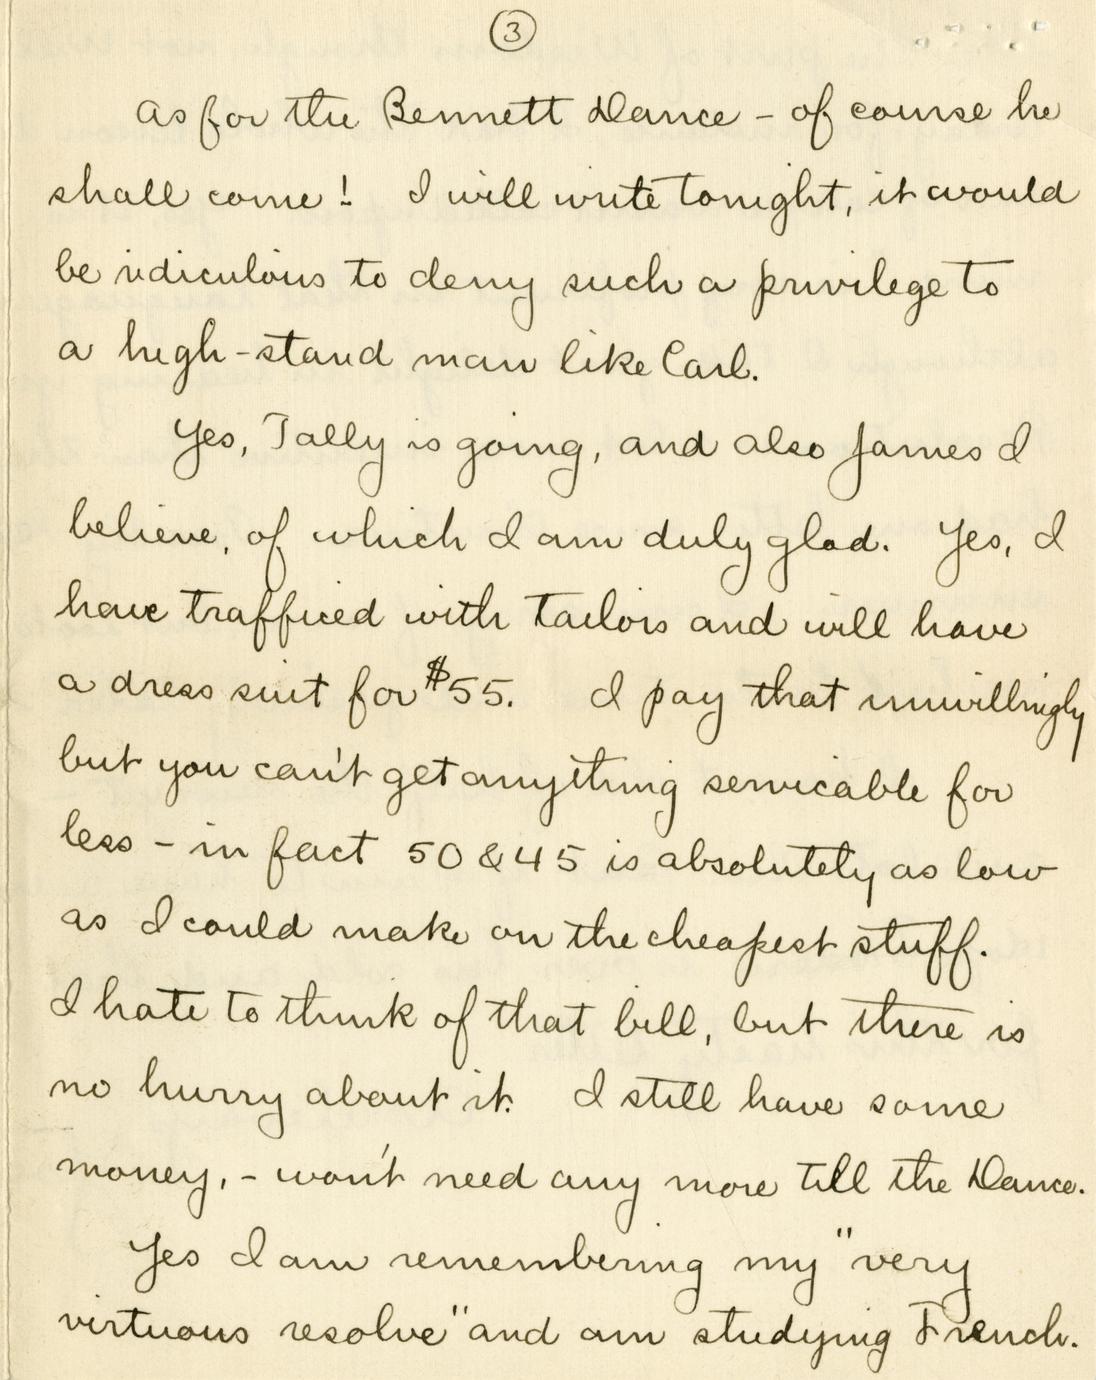 3
As for the Bennett Dance - of course he
shall come! I will write tonight, it would
be ridiculous to deny such a privilege to
a high-stand man like Carl.
Yes, Tally is going, and also James I
believe, of which I am duly glad. Yes, I
have trafficed with tailors and will have
a dress suit for $55. I pay that unwillingly
but you can't get anything servicable for
less - in fact 50 & 45 is absolutely as low
as I could make on the cheapest stuff.
I hate to think of that bill, but there is
no hurry about it. I still have some
money, - won't need any more till the Dance.
Yes I am remembering my "very
virtuous resolve" and am studying French.